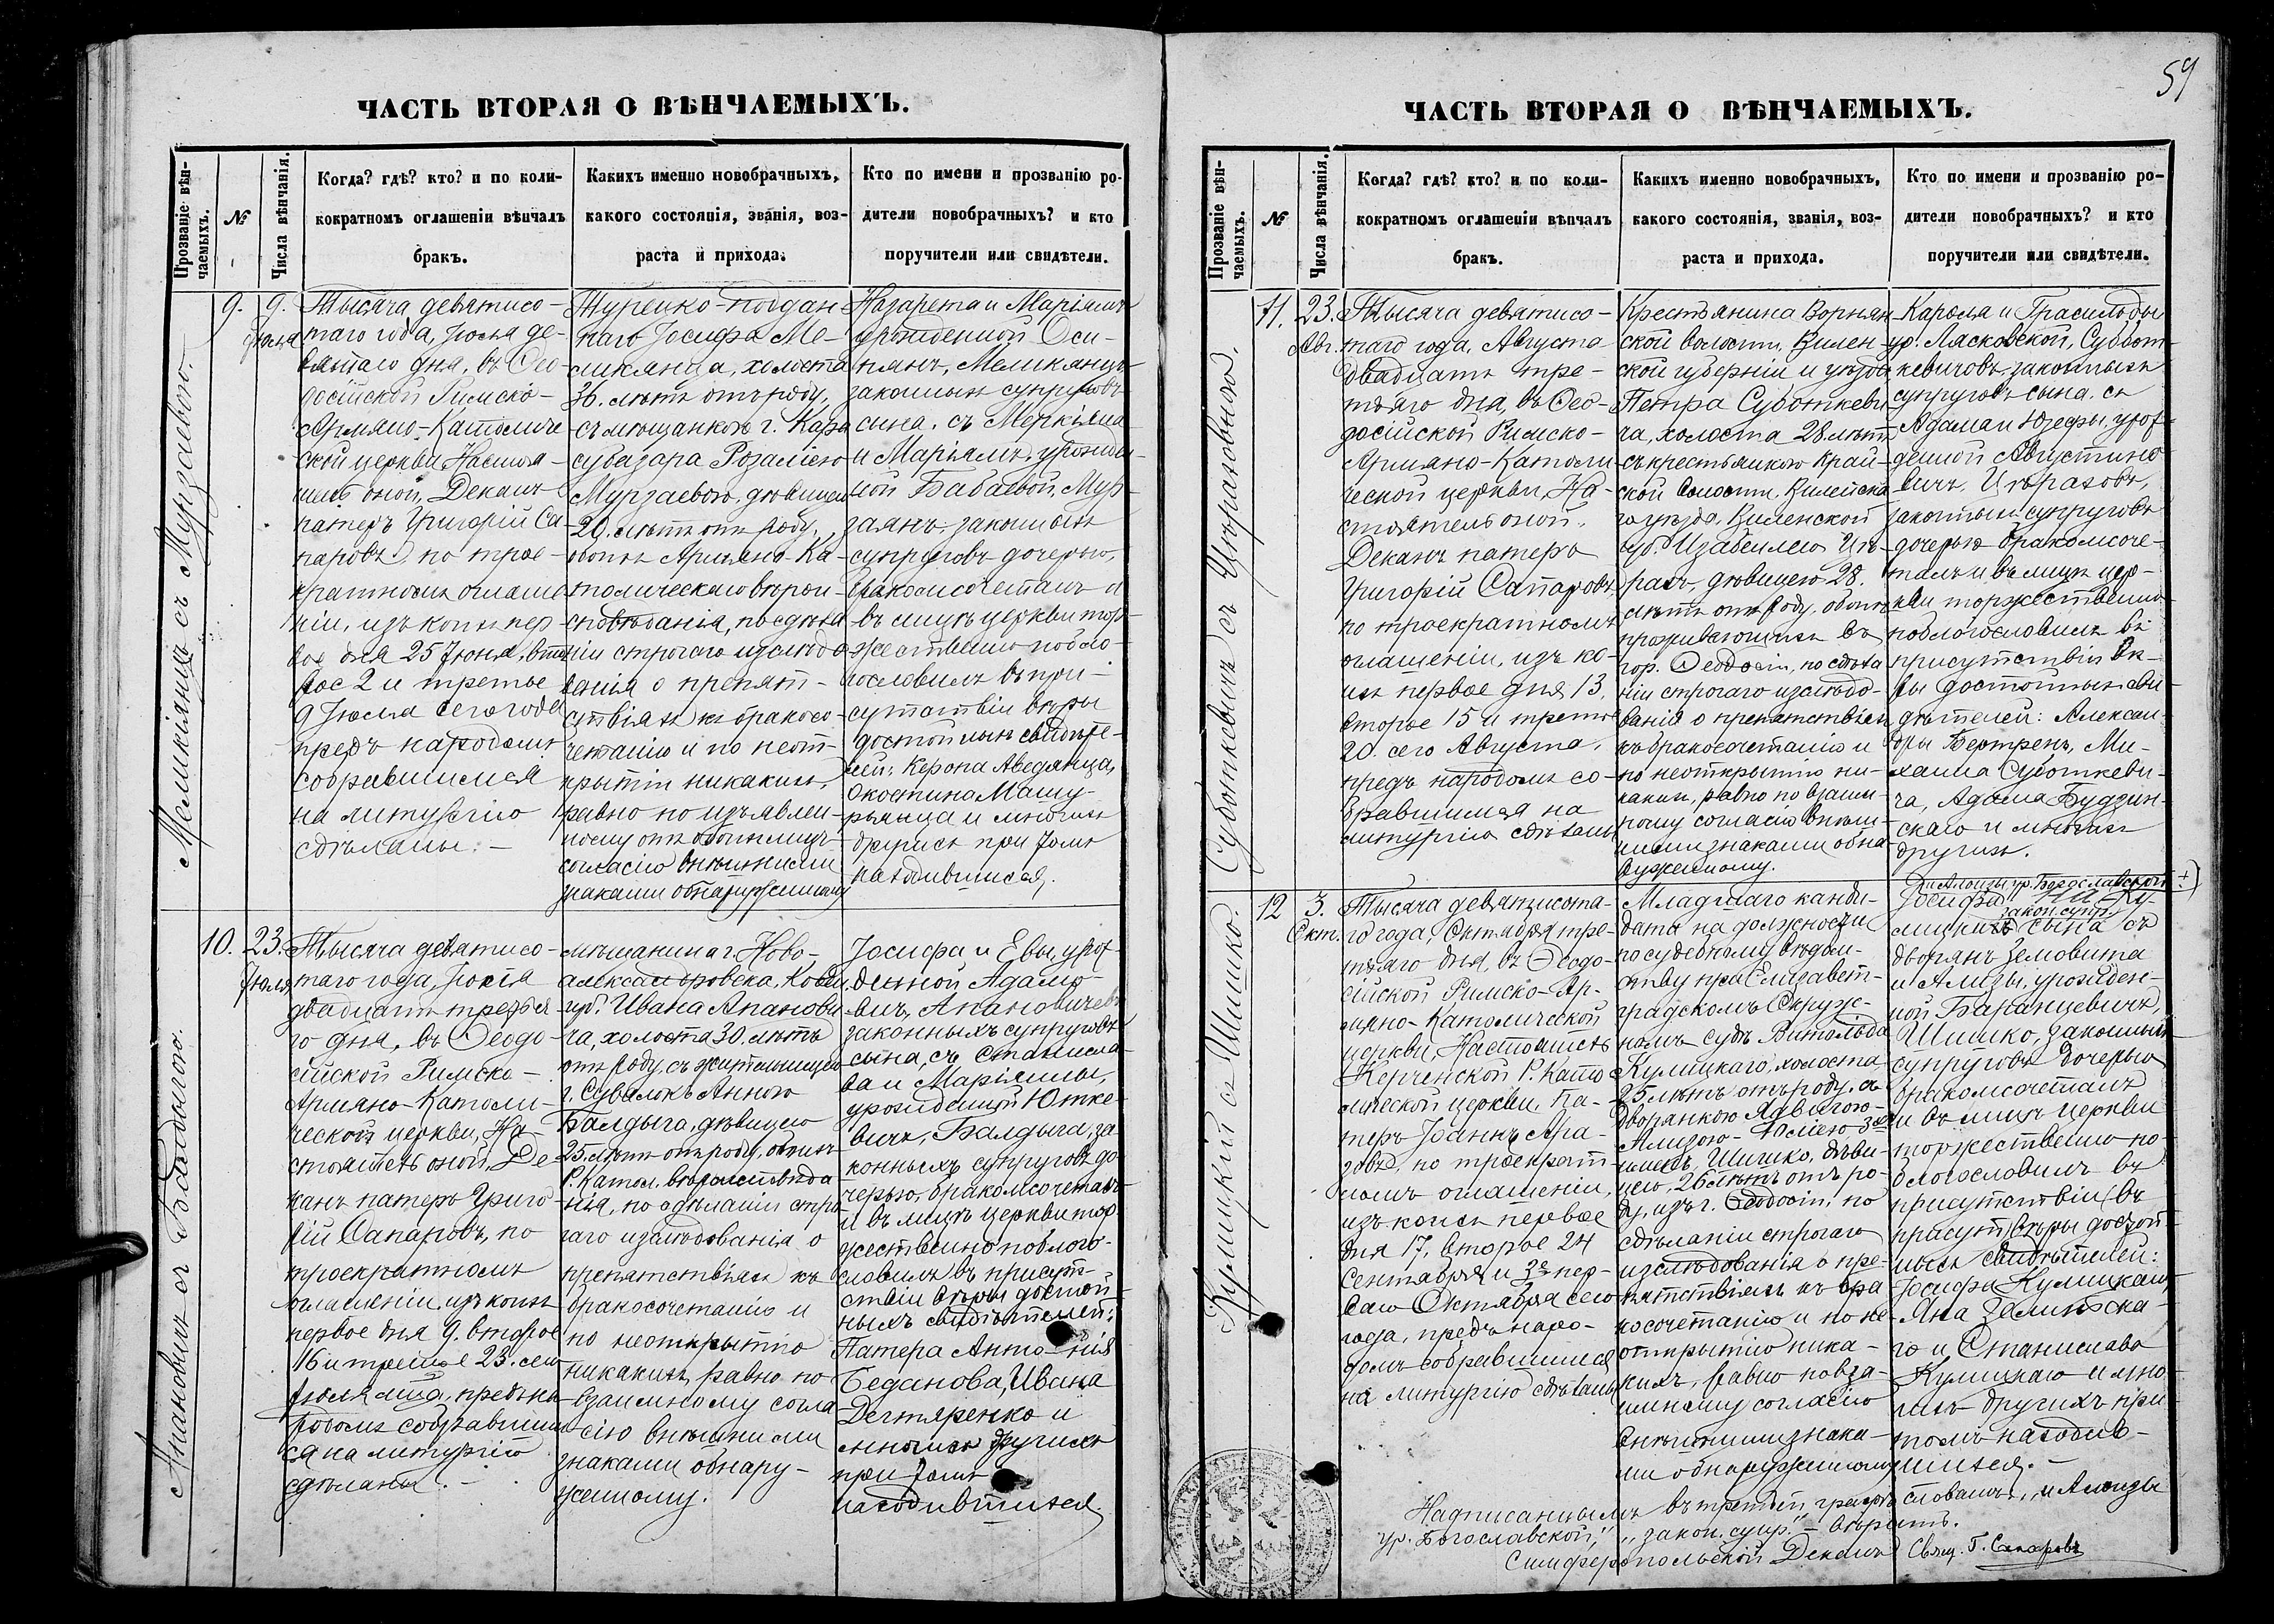 59
ЧАСТЬ ВТОРАЯ О ВѢНЧАЕМЫХЪ.
Прозваніе вѣн-
чаемыхъ.
№
Числа вѣнчанія.
Когда? гдѣ? кто? и по коли-
кократномъ оглашеніи вѣнчалъ
бракъ.
Какихъ именно новобрачныхъ,
какого состоянія, званія, воз-
раста и прихода.
Кто по имени и прозванію ро-
дители новобрачныхъ? и кто
поручители или свидѣтели.
Меликіянцъ съ Мурзаевою.
9.
9.
Іюля
Тысяча девятисо-
таго года, Іюля де-
вятаго дня, въ Ѳео-
досійской Римско-
Армяно-Католиче
ской церкви, Настоя-
тель оной, Деканъ
патеръ Григорій Са-
паровъ, по трое-
кратномъ оглаше
ніи, изъ коихъ пер-
вое дня 25 Іюня, вто
рое 2 и третье
9 Іюля сего года
предъ народомъ
собравшимся
на литургію
сдѣланы.-
Турецко-поддан
наго Іосифа Ме-
ликянца, холоста
36. лѣтъ отъ роду,
съ мѣщанкою г. Кара
субазара Розаліею
Мурзаевою, дѣвицею
20. лѣтъ отъ роду,
обоихъ Армяно-Ка-
толическаго вѣрои-
сповѣданія, по сдѣла
ніи строгаго изслѣдо
ванія о препят-
ствіяхъ къ бракосо-
четанію и по неот-
крытіи никакихъ,
равно по изъявлен-
ному отъ обоихъ лицъ
согласію внѣшними
знаками обнаруженному
Назарета и Маріямъ
урожденной Оси-
пянъ, Меликянцъ
законныхъ супруговъ
сына, съ Меркіяна
и Маріямъ, урожден-
ной Бабаевой, Мур-
заянъ законныхъ
супруговъ дочерью,
бракомъ сочеталъ и
въ лицѣ церкви тор-
жественно побло-
гословилъ въ при-
сутствіи вѣры
достойныхъ свидѣте-
лей: Керопа Аведянца,
Окостина Машу-
рьянца и многихъ
другихъ при томъ
находившихся.
Апановичъ съ Балдыгою.
10.
23.
Іюля
Тысяча девятисо-
таго года, Іюля
двадцать третья
го дня, въ Ѳеодо-
сійской Римско-
Армяно-Католи-
ческой церкви, На-
стоятель оной, Де
канъ патеръ Григо
рій Сапаровъ, по
троекратномъ
оглашеніи, изъ коихъ
первое дня 9. второе
16 и третье 23. сего
Іюля м-ца, предъ на
родомъ собравшим
ся на литургію
сдѣланы.-
мѣщанина г. Ново-
александровска, Ковен.
губ. Ивана Апанови
ча, холоста 30. лѣтъ
отъ роду, съ жительницею
г. Сувалокъ Анною
Балдыга, дѣвицею
25. лѣтъ отъ роду, обоихъ
Р. Катол. вѣроисповѣда
нія, по сдѣланіи стро
гаго изслѣдованія о
препятствіяхъ къ
бракосочетанію и
по неоткрытію
никакихъ, равно по
взаимному согла
сію внѣшними
знаками обнару-
женному.
Іосифа и Евы, урож
денной Адамо-
вичъ, Апановичевъ
законныхъ супруговъ
сына, съ Станисла-
ва и Маріянны,
урожденной Ютке-
вичъ, Балдыга, за
конныхъ супруговъ до
черью, бракомъ сочеталъ
и въ лицѣ церкви тор
жественно поблаго-
словилъ въ присут-
ствіи вѣры достой-
ныхъ свидѣтелей:
Патера Антонія
Беданова, Ивана
Дегтяренко и
многихъ другихъ
при томъ
находившихся.
ЧАСТЬ ВТОРАЯ О ВѢНЧАЕМЫХЪ.
Прозваніе вѣн-
чаемыхъ.
№
Числа вѣнчанія.
Когда? гдѣ? кто? и по коли-
кократномъ оглашеніи вѣнчалъ
бракъ.
Какихъ именно новобрачныхъ,
какого состоянія, званія, воз-
раста и прихода.
Кто по имени и прозванію ро-
дители новобрачныхъ? и кто
поручители или свидѣтели.
Суботкевичъ съ
11.
23.
Авг.
Тысяча девятисо-
таго года, Августа
двадцать тре-
тьяго дня, въ Ѳео-
досійской Римско-
Армяно-Католи
ческой церкви, На-
стоятель оной,
Деканъ патеръ
Григорій Сапаровъ,
по троекратномъ
оглашеніи, изъ ко-
ихъ первое дня 13.
второе 15 и третье
20. сего Августа,
предъ народомъ со-
бравшимся на
литургію сдѣланы
Крестьянина Ворнян
ской волости, Вилен-
ской губерніи и уѣзда
Петра Суботкеви
ча, холоста 28. лѣтъ
съ крестьянкою Край-
ской волости, Вилейска
го уѣзда, Виленской
губ. Изабеллею
дѣвицею 28.
лѣтъ отъ роду, обоихъ
проживающихъ въ
гор. Ѳеодосіи, по сдѣла
ніи строгаго изслѣдо-
ванія о препятствіяхъ
къ бракосочетанію и
по неоткрытію ни-
какихъ, равно по взаим-
ному согласію внѣш-
ними знаками обна
руженному.
Кароля и Прасилоды
ур. Лясковской, Суббот-
кевичовъ законныхъ
супруговъ сына, съ
Адама и Юзефы, урож-
денной Августино
вичъ,
законныхъ супруговъ
дочерью бракомъ соче-
талъ и въ лицѣ цер-
кви торжественно
поблогословилъ въ
присутствіи вѣ-
ры достойныхъ сви
дѣтелей: Алексан-
дры Бертренъ, Ми-
хаила Суботкеви-
ча, Адама Будзин-
скаго и многихъ
другихъ.
Кулицкій съ Шишко.
12
3.
Окт.
Тысяча девятисота-
го года, Октября тре-
тьяго дня, въ Ѳеодо-
сійской Римско-Ар-
мяно-Католической
церкви, Настоятель
Керченской Р. Като
лической церкви, Па-
теръ Іоаннъ Ара-
по троекрат-
номъ оглашеніи,
изъ коихъ первое
дня 17, второе 24
Сентября и 3-е пер-
ваго Октября сего
года, предъ наро-
домъ собравшимся
на литургію сдѣланы
Младшаго канди-
дата на должности
по судебному вѣдом-
ству при Елизавет-
градскомъ Окруж-
номъ судѣ Витольда
Кулицкаго, холоста
25 лѣтъ отъ роду, съ
дворянкою Ядвигою-
Ализою-Юліею 3хъ
именъ, Шишко, дѣви-
цею, 26 лѣтъ отъ ро-
ду, изъ г. Ѳеодосіи, по
сдѣланіи строгаго
изслѣдованія о пре-
пятствіяхъ къ бра
косочетанію и по не-
открытію ника-
кихъ, равно по вза-
имному согласію
внѣшними знака-
ми обнаруженному
и Алоизы ур. Богославской +)
Іосифа Ку-
закон. супр.
лицкихъ сына съ
дворянъ Земовита
и Ализы, урожден-
ной Баранцевичъ,
Шишко, законныхъ
супруговъ дочерью
бракомъ сочеталъ
и въ лицѣ церкви
торжественно по-
благословилъ въ
присутствіи (въ
присут) вѣры достой-
ныхъ свидѣтелей:
Іосифа Кулицкаго,
Яна Залинска-
го и Станислава
Кулицкаго и мно-
гихъ другихъ при
томъ находив-
шихся.-
Надписаннымъ въ третьей графѣ словамъ: „и Алоизы
ур. Богославской," „закон. супр." - вѣрить.
Симферопольской Деканъ Свящ. Г. Сапаровъ